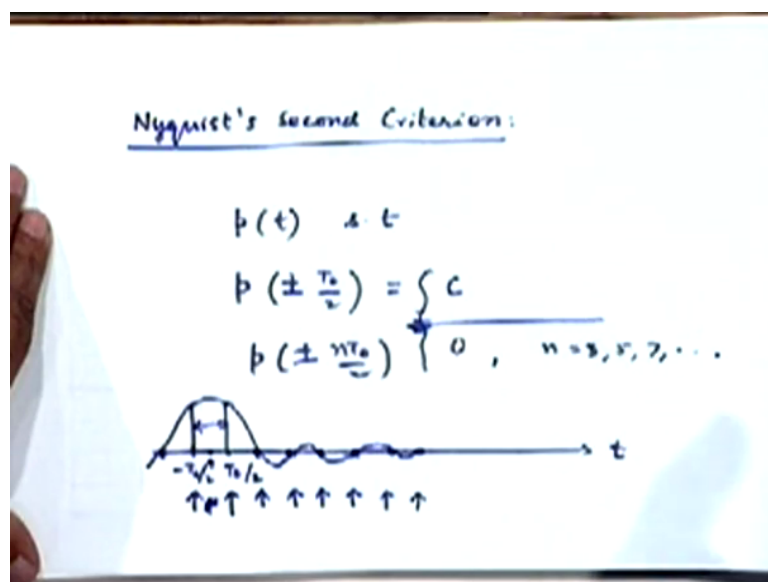 Nyquist's Second Criterion:
p(t) s.t
p(± T₀/2) = { C
p(± nT₀/2) { 0, n = 3, 5, 7, ...
-T₀/2 T₀/2 t